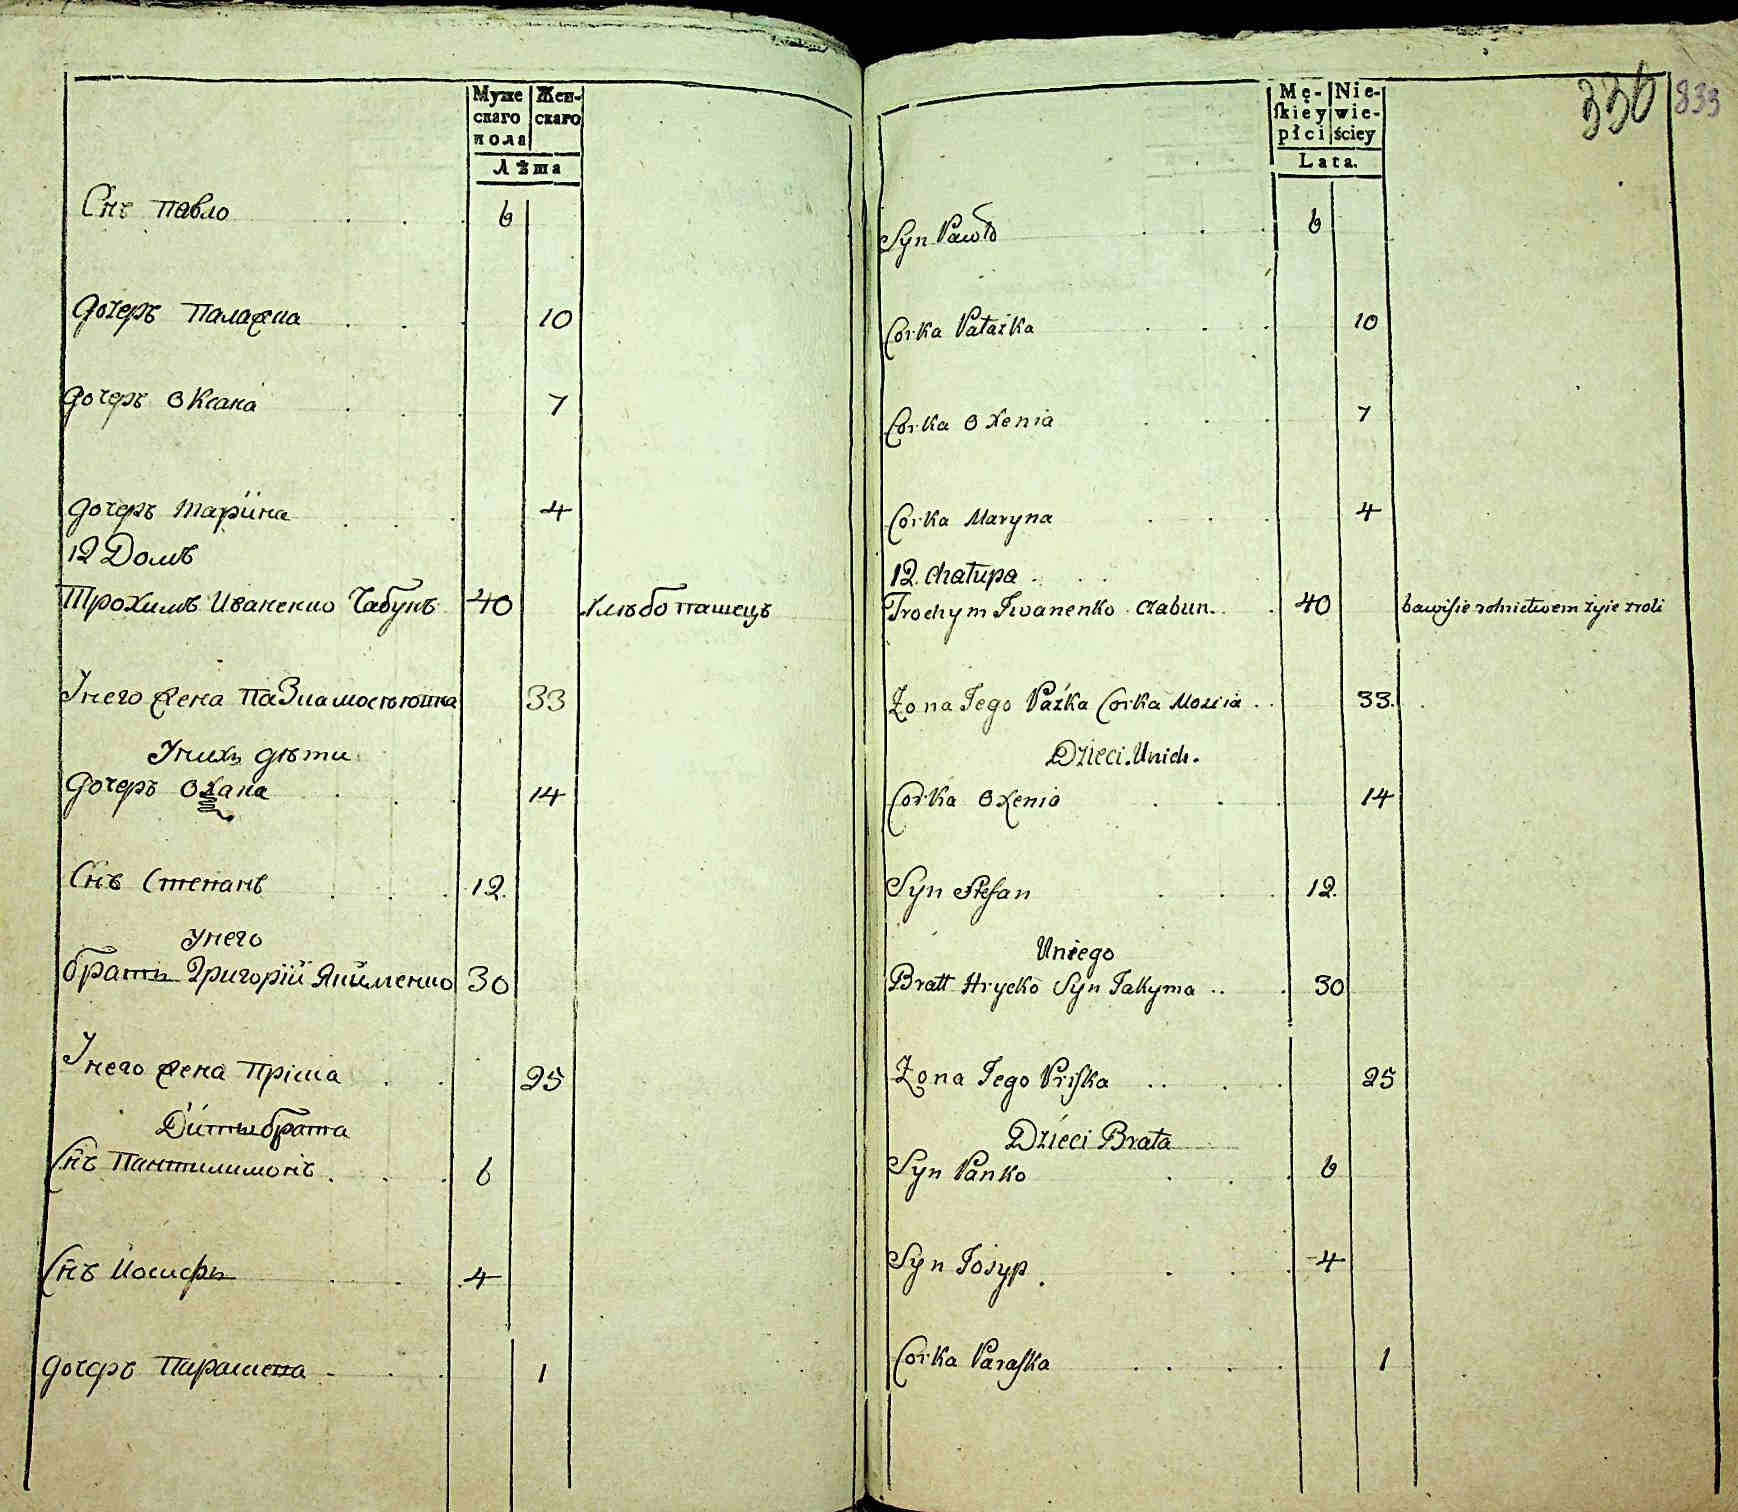 Муже Жен-
скаго скаго
пола
Лѣта
Снъ Павло 6
Дочеръ Палажка 10
Дочеръ Оксана 7
Дочеръ Марiина 4
12 Домъ
Трохимъ Иваненко Чабунъ 40 хлѣбопашецъ
Унего жена Пазка 33
Унихъ дѣти
Дочеръ Охана 14
Снъ Степанъ 12
Унего
братъ Григорiй Якименко 30
Унего жена Прiска 25
Дѝты брата
Снъ Пантилимонъ 6
Снъ Иосифъ 4
Дочеръ Параскева 1
336 833
Mę- Nie-
ſkiey wie-
płci ściey
Lata.
Syn Pawło 6
Corka Pałażka 10
Corka Oxenia 7
Corka Maryna 4
12. Chałupa
Trochym Jwanenko Czabun 40 bawi sie rolnictwem żyie z roli
Żona Jego Paźka Corka Mosieia 33.
Dzieci Unich.
Corka Oxenia 14
Syn Stefan 12.
Uniego
Bratt Hrycko Syn Jakyma 30
Żona Jego Priſka 25
Dzieci Brata
Syn Panko 6
Syn Josyp 4
Corka Paraſka 1